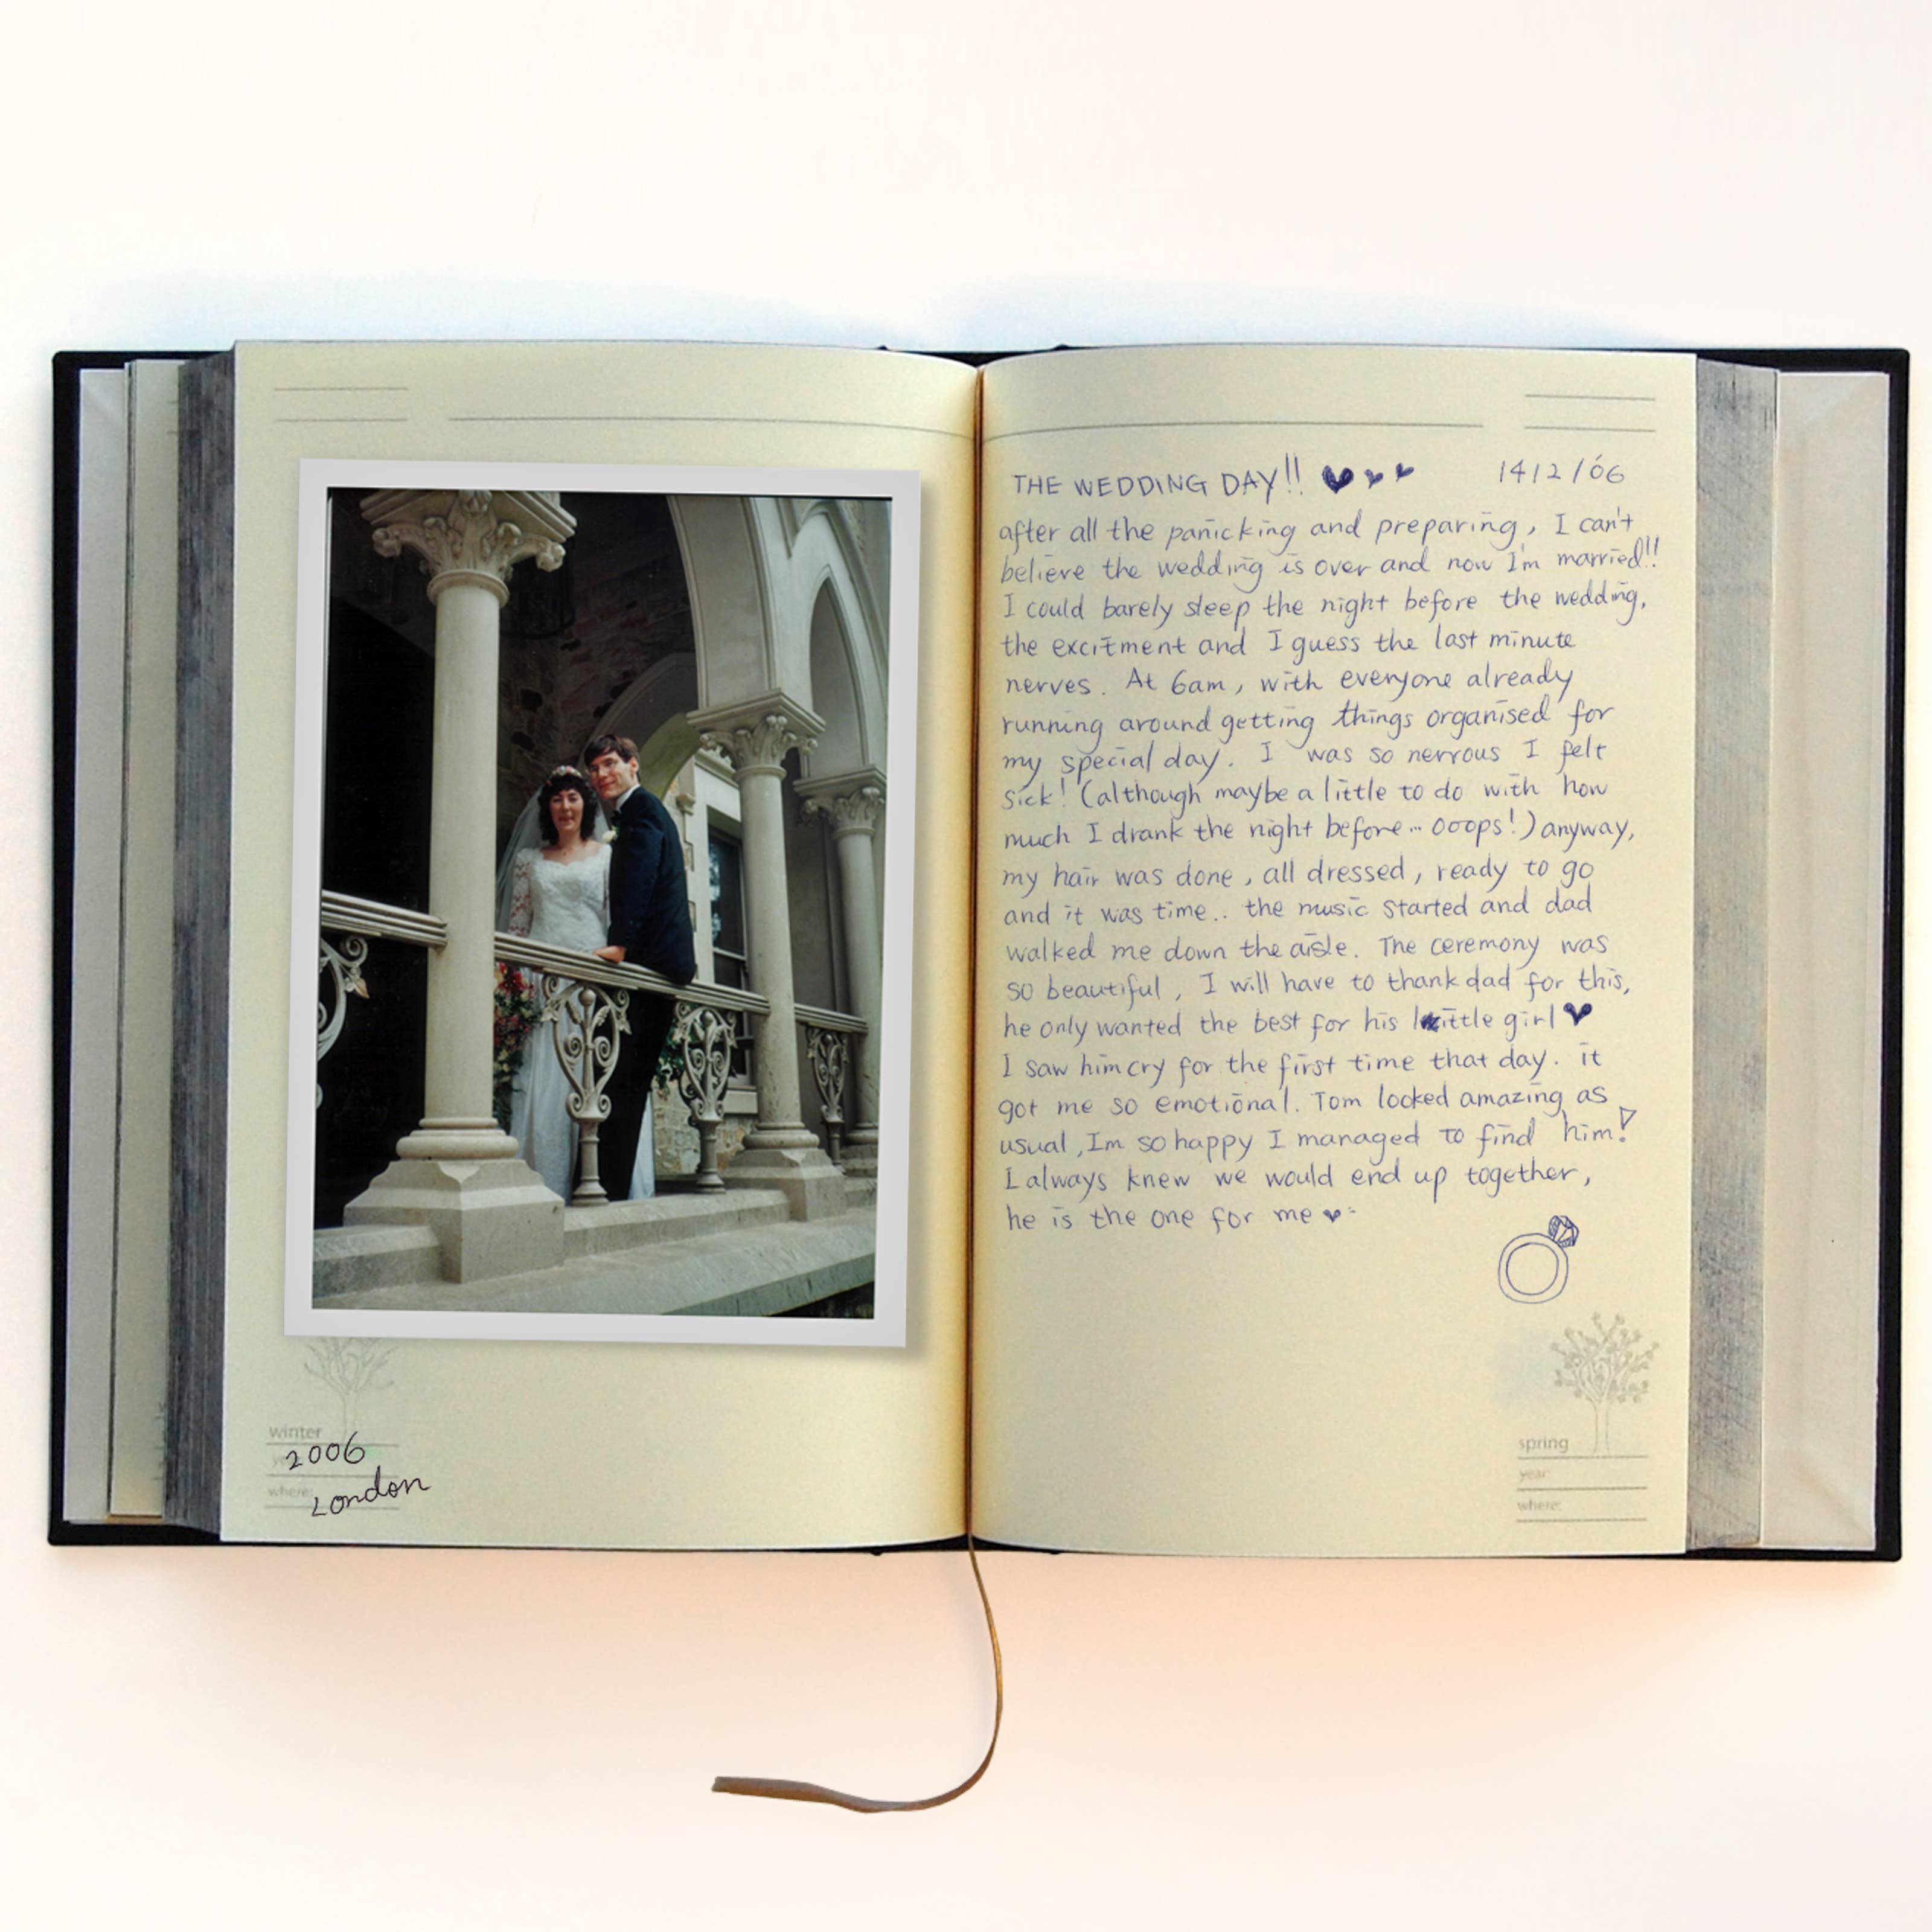 winter
2006
where:
London
THE WEDDING DAY!! 1412/06
after all the panicking and preparing, I can't
believe the wedding is over and now I'm married!!
I could barely sleep the night before the wedding,
the excitment and I guess the last minute
nerves. At 6am, with everyone already
running around getting things organised for
my special day. I was so nervous I felt
sick! (although maybe a little to do with how
much I drank the night before... ooops!) anyway,
my hair was done, all dressed, ready to go
and it was time.. the music started and dad
walked me down the aisle. The ceremony was
so beautiful, I will have to thank dad for this,
he only wanted the best for his little girl ♥
I saw him cry for the first time that day. it
got me so emotional. Tom looked amazing as
usual, Im so happy I managed to find him!
I always knew we would end up together,
he is the one for me ♥
spring
year:
where: